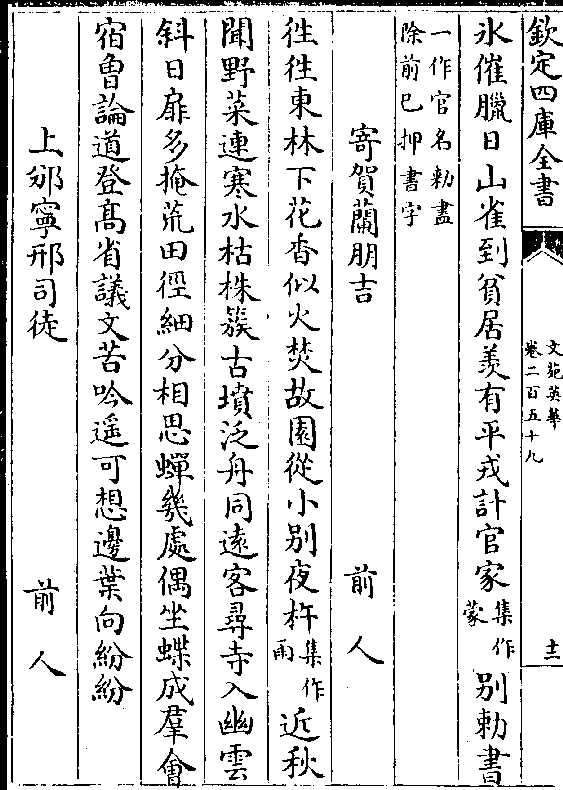 欽定四庫全書
文苑英華
卷二百五十九
十二
氷催臘日山雀到貧居羨有平戎計官家集作蒙別勅書
一作官名勅盡除前已押書字
寄賀蘭朋吉
前人
徃徃東林下花香似火焚故園從小别夜杵集作雨近秋
聞野菜連寒水枯株簇古墳泛舟同遠客尋寺入幽雲
斜日扉多掩荒田徑細分相思蟬幾處偶坐蝶成羣㑹
宿曾論道登髙省議文苦吟遥可想邊葉向紛紛
上邠寧邢司徒
前人